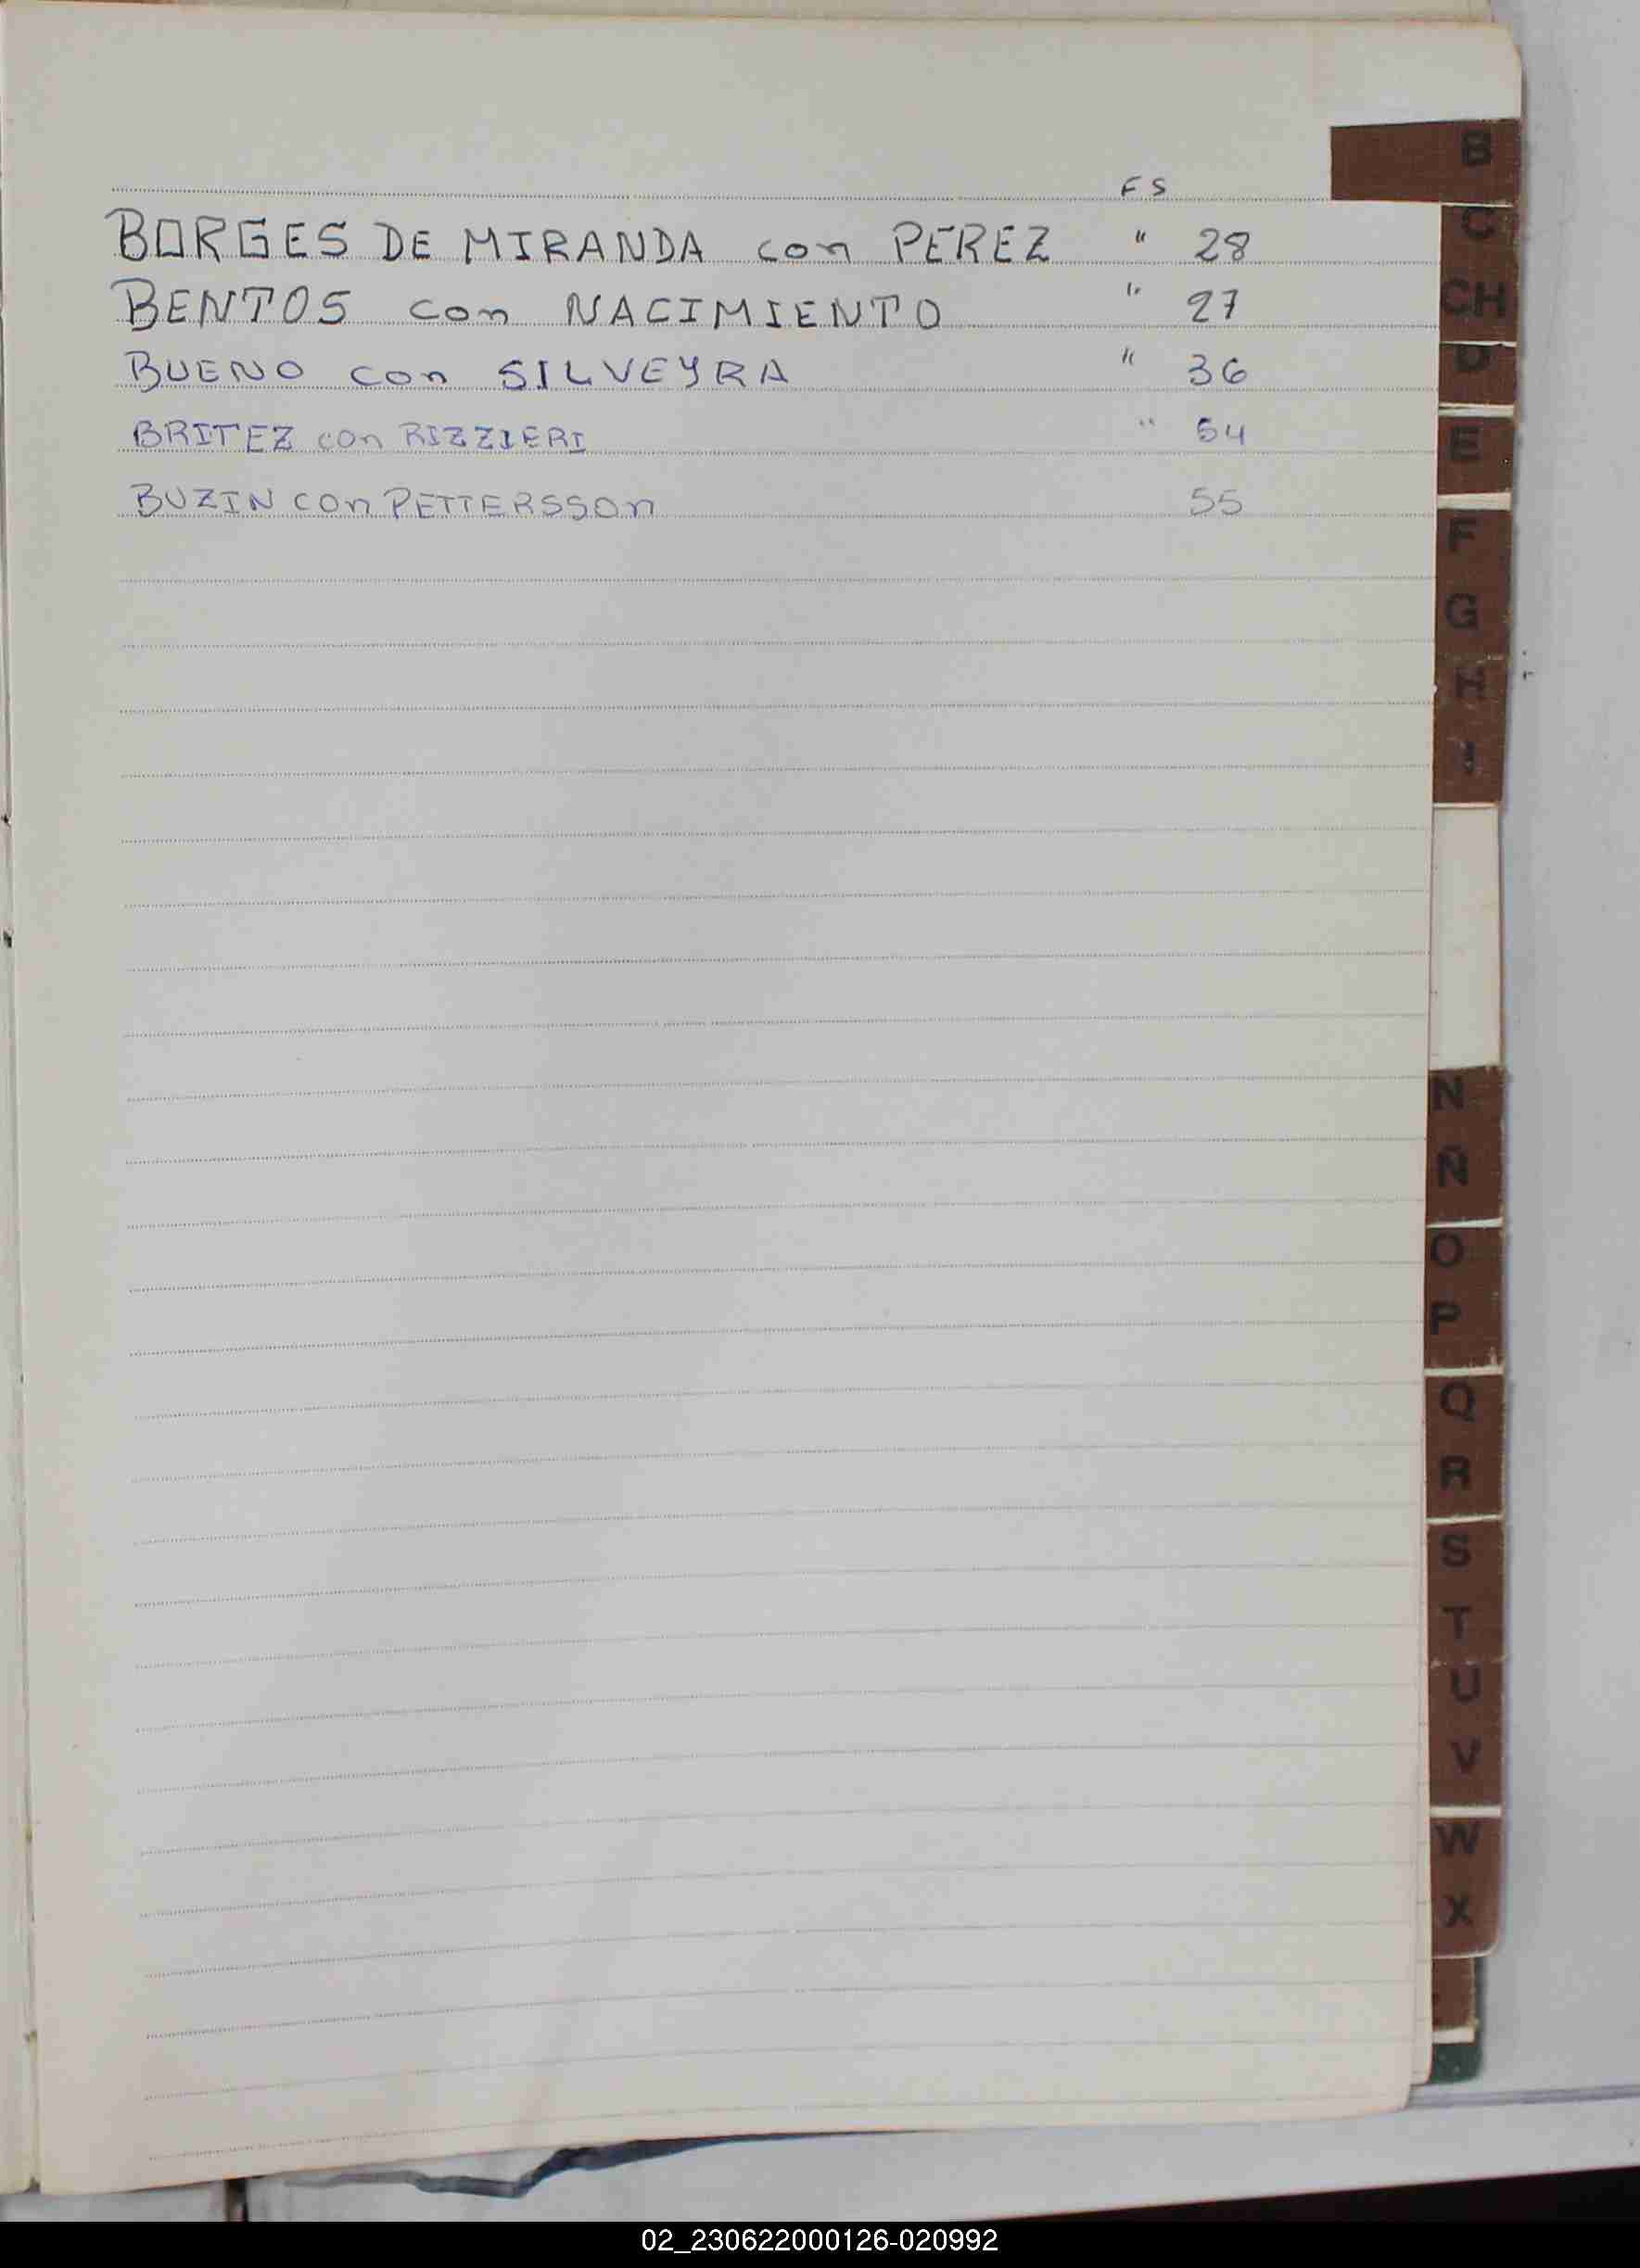 FS
BORGES DE MIRANDA con PEREZ " 28
BENTOS con NACIMIENTO " 27
BUENO con SILVEYRA " 36
BRITEZ con RIZZIERI " 54
BUZIN con PETTERSSON 55
B
C
CH
D
E
F
G
H
I
N
Ñ
O
P
Q
R
S
T
U
V
W
X
02_230622000126-020992